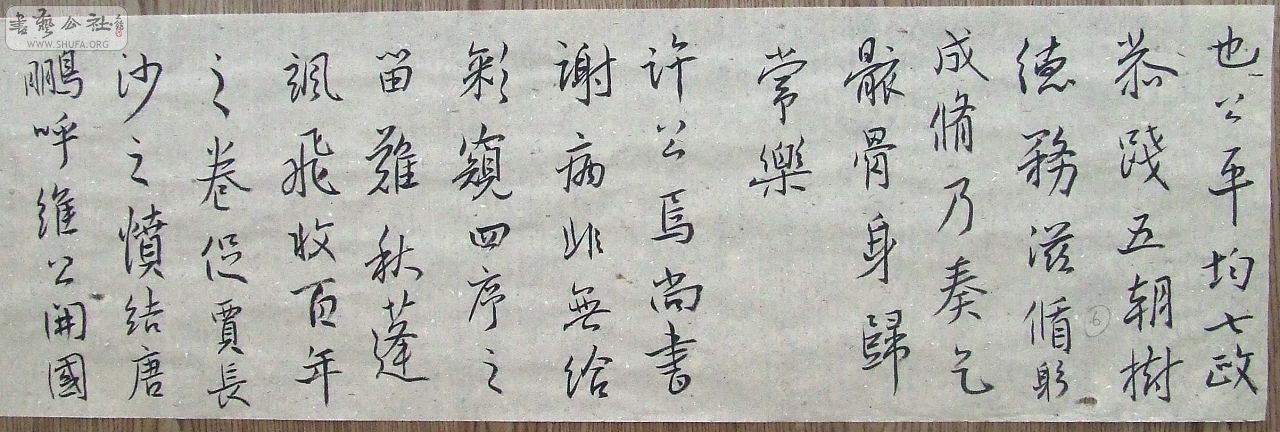 書藝公社
WWW.SHUFA.ORG
也公平均七政
恭踐五朝樹
德務滋脩躬
成脩乃奏乞
骸骨身歸
常樂
許公焉尚書
謝病非無給
彩窺四序之
留難秋蓬
颯飛收百年
之卷促賈長
沙之憤結唐
鵬呼維公開國
6